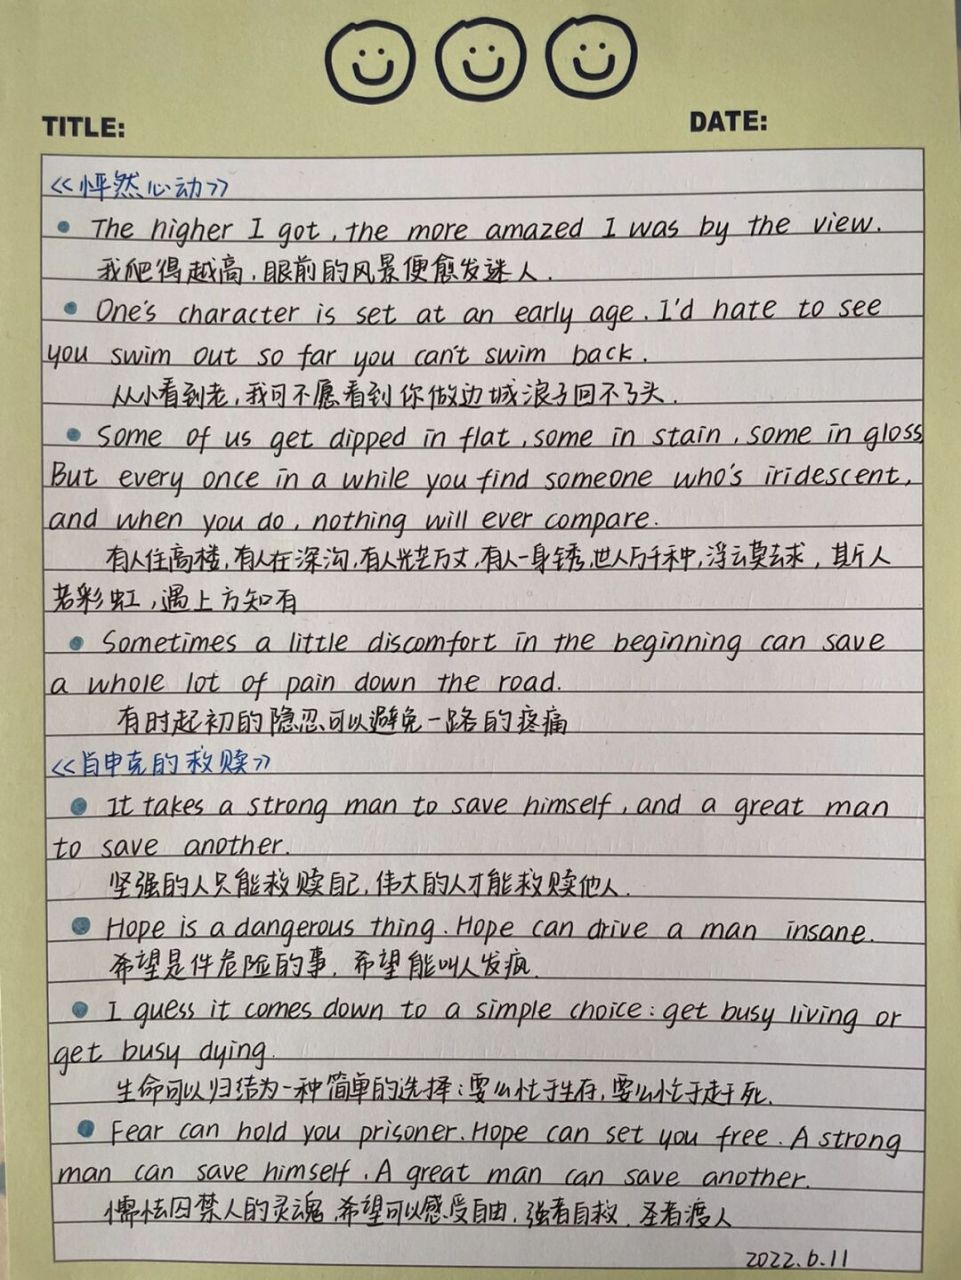 TITLE:
DATE:
<<怦然心动>>
The higher I got, the more amazed I was by the view.
我爬得越高,眼前的风景便愈发迷人.
One's character is set at an early age. I'd hate to see
you swim out so far you can't swim back.
从小看到老,我可不愿看到你做边城浪子回不了头.
Some of us get dipped in flat, some in stain, some in gloss
But every once in a while you find someone who's iridescent,
and when you do, nothing will ever compare.
有人住高楼,有人在深沟,有人光芒万丈,有人一身锈,世人万千种,浮云莫去求,斯人
若彩虹,遇上方知有
Sometimes a little discomfort in the beginning can save
a whole lot of pain down the road.
有时起初的隐忍可以避免一路的疼痛
<<肖申克的救赎>>
It takes a strong man to save himself, and a great man
to save another.
坚强的人只能救赎自己,伟大的人才能救赎他人.
Hope is a dangerous thing. Hope can drive a man insane.
希望是件危险的事.希望能叫人发疯.
I guess it comes down to a simple choice: get busy living or
get busy dying.
生命可以归结为一种简单的选择:要么忙于生存,要么忙于赴死.
Fear can hold you prisoner. Hope can set you free. A strong
man can save himself. A great man can save another.
懦怯囚禁人的灵魂,希望可以感受自由.强者自救.圣者渡人
2022.6.11